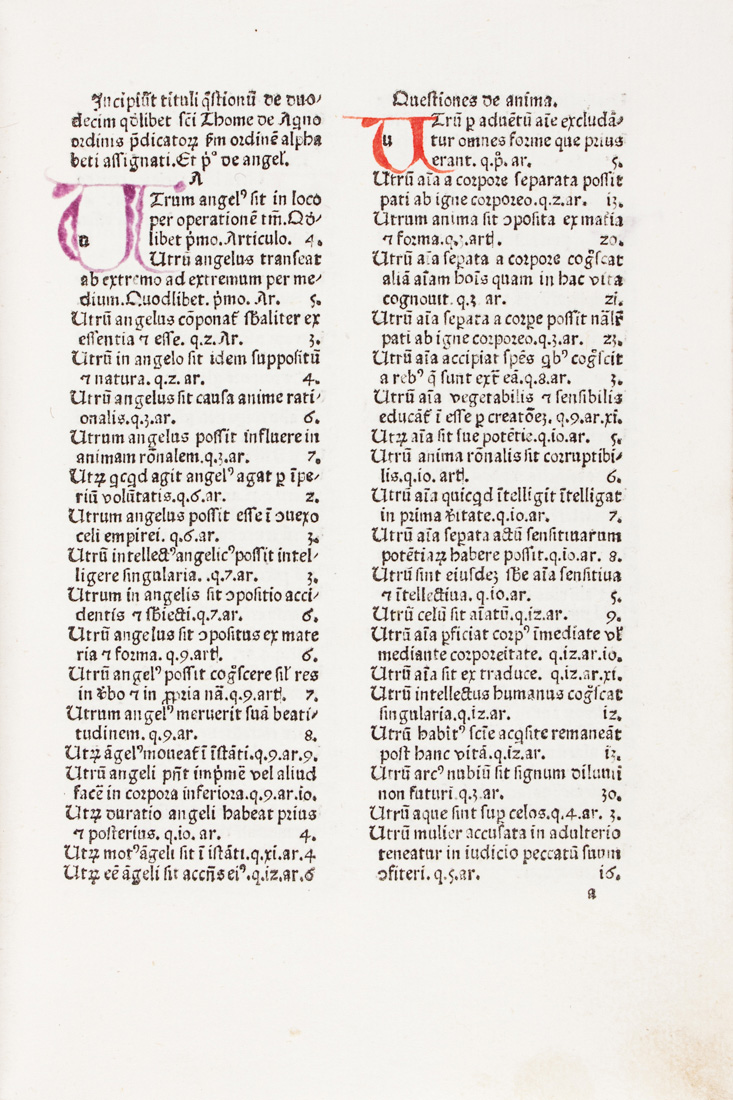 Incipiūt tituli q̄stionū de duo⸗
decim qdlibet scī Thome de Aqno
ordinis p̄dicatoꝝ ẜm ordinē alpha
beti assignati. Et p̊ de angeꝉ.
A
UTrum angelꝰ sit in loco
per operationē tm̄. Qō⸗
libet p̊mo. Articulo. 4.
Utrū angelus transeat
ab extremo ad extremum per me⸗
dium. Quodlibet. p̊mo. Ar. 5.
Utrū angelus cōponat̄ sb̄aliter ex
essentia ⁊ esse. q.2. Ar. 3.
Utrū in angelo sit idem suppositū
⁊ natura. q.2. ar. 4.
Utrū angelus sit causa anime rati⸗
onalis. q.3. ar. 6.
Utrum angelus possit influere in
animam rōnalem. q.3. ar. 7.
Utꝝ qcqd agit angelꝰ agat ꝑ īpe⸗
riū volūtatis. q.6. ar. 2.
Utrum angelus possit esse ī ꝯuexo
celi empirei. q.6. ar. 3.
Utrū intellectꝰ angelicꝰ possit intel⸗
ligere singularia. .q.7. ar. 3.
Utrum in angelis sit ꝯpositio acci⸗
dentis ⁊ sb̄iecti. q.7. ar. 6.
Utrū angelus sit ꝯpositus ex mate
ria ⁊ forma. q.9. art̄. 6.
Utrū angelꝰ possit coḡscere siꝉ res
in v̄bo ⁊ in ꝓpria nā. q.9. art̄. 7.
Utrum angelꝰ meruerit suā beati⸗
tudinem. q.9. ar. 8.
Utꝝ āgelꝰ moueat̄ ī īstāti. q.9. ar. 9.
Utrū angeli pn̄t imp̄mē vel aliud
facē in corpora inferiora. q.9. ar. io.
Utꝝ duratio angeli habeat prius
⁊ posterius. q. io. ar. 4.
Utꝝ motꝰ āgeli sit ī īstāti. q. xi. ar. 4
Utꝝ eē āgeli sit accn̄s eiꝰ. q. i2. ar. 6
Questiones de anima.
UTrū ꝑ aduētū aīe excludā⸗
tur omnes forme que prius
erant. q. p̊. ar. 5.
Utrū aīa a corpore separata possit
pati ab igne corporeo. q.2. ar. i3.
Utrum anima sit ꝯposita ex mat̄ia
⁊ forma. q.3. art̄. 20.
Utrū aīa sepata a corpore coḡscat
aliā aīam hoīs quam in hac vita
cognouit. q.3. ar. 2i.
Utrū aīa sepata a corpe possit nāꝉr
pati ab igne corporeo. q.3. ar. 23.
Utrū aīa accipiat spēs qbꝰ coḡscit
a rebꝰ q̄ sunt ext̄ eā. q.8. ar. 3.
Utrū aīa vegetabilis ⁊ sensibilis
educāt̄ ī esse ꝑ creatōeꝫ. q.9. ar. xi.
Utꝝ aīa sit sue potētie. q. io. ar. 5.
Utrū anima rōnalis sit corruptibi⸗
lis. q. io. art̄. 6.
Utrū aīa quicqd ītelligit ītelligat
in prima v̄itate. q. io. ar. 7.
Utrū aīa sepata actū sensitiuarum
potētiaꝝ habere possit. q. io. ar. 8.
Utrū sint eiusdeꝫ sb̄e aīa sensitiua
⁊ ītellectiua. q. io. ar. 5.
Utrū celū sit aīatū. q. i2. ar. 9.
Utrū aīa ꝑficiat corpꝰ īmediate vꝉ
mediante corporeitate. q. i2. ar. io.
Utrū aīa sit ex traduce. q. i2. ar. xi.
Utrū intellectus humanus coḡscat
singularia. q. i2. ar. i2.
Utrū habitꝰ scīe acqsite remaneāt
post hanc vitā. q. i2. ar. i3.
Utrū arcꝰ nubiū sit signum diluuii
non futuri. q.3. ar. 30.
Utrū aque sint sup celos. q.4. ar. 3.
Utrū mulier accusata in adulterio
teneatur in iudicio peccatū suum
ꝯfiteri. q.5. ar. i6.
a